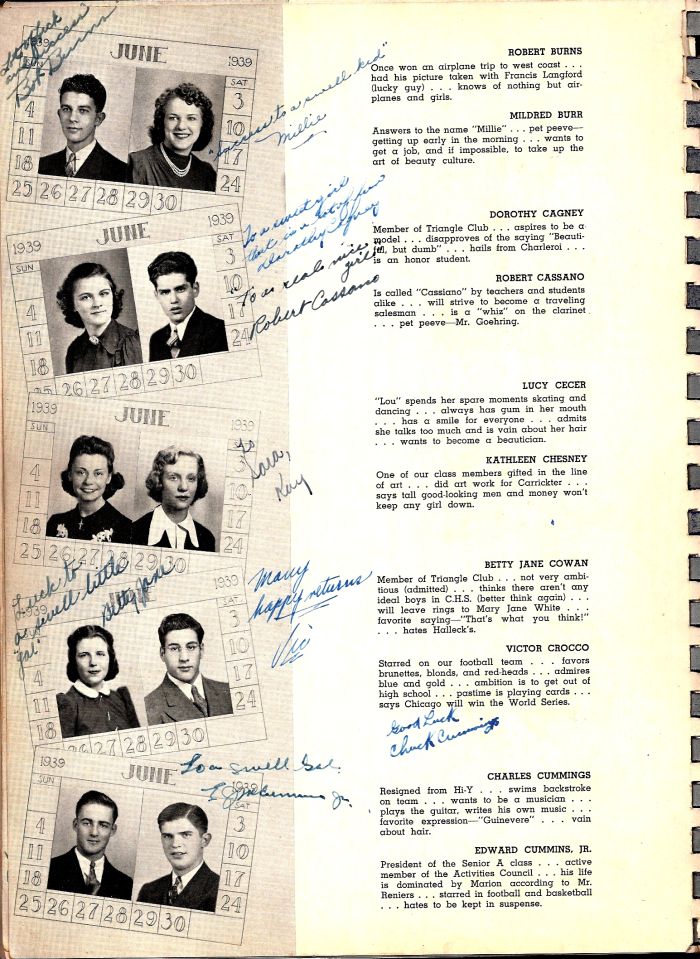 Good luck
and success
Bob Burns
JUNE
1939
SUN
SAT
4
3
11
10
18
17
25 26 27 28 29 30
24
"Success to a swell kid"
Millie
ROBERT BURNS
Once won an airplane trip to west coast . . .
had his picture taken with Francis Langford
(lucky guy) . . . knows of nothing but air-
planes and girls.
MILDRED BURR
Answers to the name "Millie" . . . pet peeve—
getting up early in the morning . . . wants to
get a job, and if impossible, to take up the
art of beauty culture.
1939
JUNE
1939
SUN
SAT
4
3
11
10
18
17
25 26 27 28 29 30
24
To a sweet girl
that is a lot of fun
Dorothy Cagney
To a real nice
girl"
Robert Cassano
DOROTHY CAGNEY
Member of Triangle Club . . . aspires to be a
model . . . disapproves of the saying "Beauti-
ful, but dumb" . . . hails from Charleroi . . .
is an honor student.
ROBERT CASSANO
Is called "Cassiano" by teachers and students
alike . . . will strive to become a traveling
salesman . . . is a "whiz" on the clarinet
. . . pet peeve—Mr. Goehring.
1939
JUNE
1939
SUN
SAT
4
3
11
10
18
17
25 26 27 28 29 30
24
To
Sara,
Kay
LUCY CECER
"Lou" spends her spare moments skating and
dancing . . . always has gum in her mouth
. . . has a smile for everyone . . . admits
she talks too much and is vain about her hair
. . . wants to become a beautician.
KATHLEEN CHESNEY
One of our class members gifted in the line
of art . . . did art work for Carrickter . . .
says tall good-looking men and money won't
keep any girl down.
Luck to
a swell little
gal"
Betty Jane
1939
SUN
SAT
4
3
11
10
18
17
25 26 27 28 29 30
24
Many
happy returns
Vic
BETTY JANE COWAN
Member of Triangle Club . . . not very ambi-
tious (admitted) . . . thinks there aren't any
ideal boys in C.H.S. (better think again) . . .
will leave rings to Mary Jane White . . .
favorite saying—"That's what you think!"
. . . hates Halleck's.
VICTOR CROCCO
Starred on our football team . . . favors
brunettes, blonds, and red-heads . . . admires
blue and gold . . . ambition is to get out of
high school . . . pastime is playing cards . . .
says Chicago will win the World Series.
Good Luck
Chuck Cummings
1939
JUNE
1939
SUN
SAT
4
3
11
10
18
17
25 26 27 28 29 30
24
To a swell Gal.
Cummins Jr.
CHARLES CUMMINGS
Resigned from Hi-Y . . . swims backstroke
on team . . . wants to be a musician . . .
plays the guitar, writes his own music . . .
favorite expression—"Guinevere" . . . vain
about hair.
EDWARD CUMMINS, JR.
President of the Senior A class . . . active
member of the Activities Council . . . his life
is dominated by Marion according to Mr.
Reniers . . . starred in football and basketball
. . . hates to be kept in suspense.